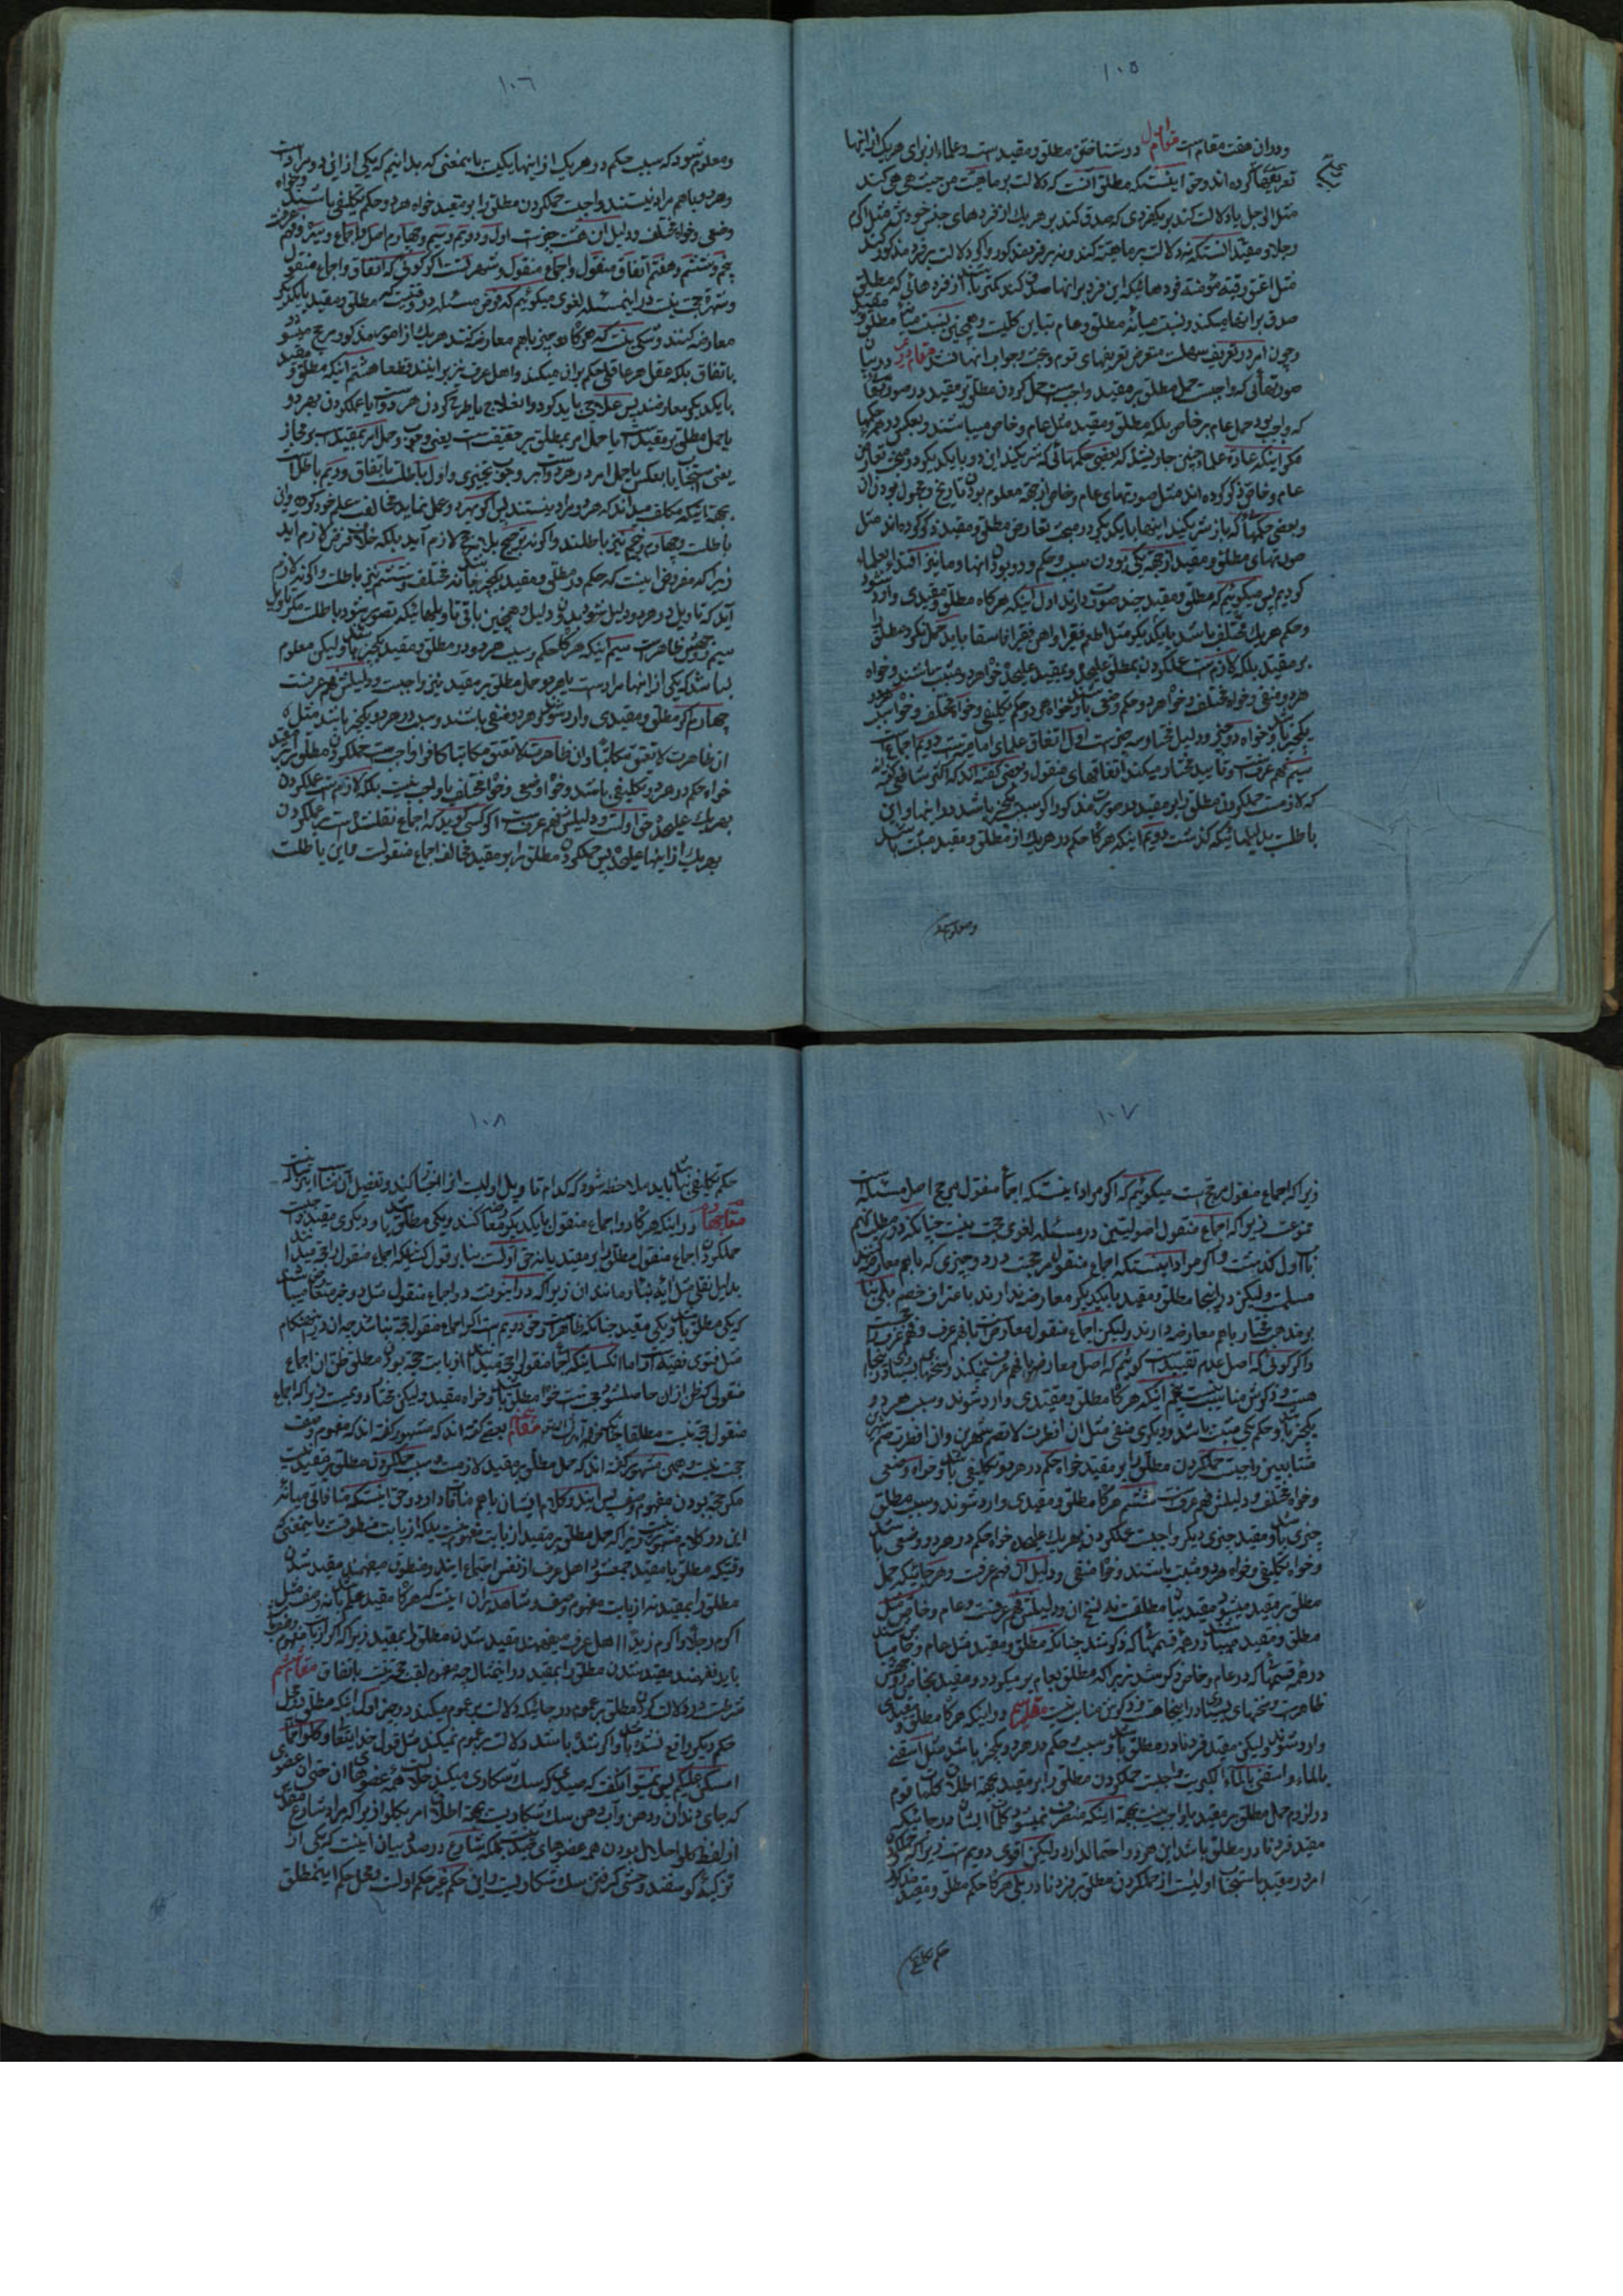 ١٠٥
ودران هفت مقام است مقام اول در شناختن مطلق و مقید است و علماء از برای هر یک از اینها
تعریفها کرده اند و حق اینست که مطلق آنست که دلالت بر ماهیت من حیث هی هی کند
مثل الرجل یا دلالت کند بر یکفردی که صدق کند بر هر یک از فردهای جنس خودش مثل اکرم
رجلا و مقید آنستکه نه دلالت بر ماهیة کند و نه بر فرد مذکور و اگر دلالت بر فرد مذکور کند
مثل اعتق رقبة مؤمنة فردهائیکه این فرد بر آنها صدق کند کمتر باشد از فردهائی که مطلق
صدق بر آنها میکند و نسبت میانه مطلق و عام تباین کلیست و همچنین نسبت میانه مقید
و چون امر در تعریف سهلست متعرض تعریفهای قوم و بحث و جواب آنها نشدیم مقام دویم در بیان
صورتهائی که واجبست حمل مطلق بر مقید
که واجب بود حمل عام بر خاص بلکه مطلق و مقید مثل عام و خاص میباشند و بعکس در همه حکمها
مگر اینکه عادة علماء چنین جاری شد که بعضی حکمهائی که شریکند این دو با یکدیگر در مبحث تعارض
عام و خاص ذکر کرده اند مثل صورتهای عام و خاص از جهة معلوم بودن تاریخ و مجهول بودن آن
و بعضی حکمها که باز شریکند اینها با یکدیگر در مبحث تعارض مطلق و مقید ذکر کرده اند مثل
صورتهای مطلق و مقید از جهة یکی بودن سبب و حکم و دو بودن آنها و ما نیز اقتدا بعلماء
کردیم پس میگوئیم که مطلق و مقید چند صورت دارند اول اینکه هرگاه مطلق و مقیدی وارد شود
و حکم هر یک مختلف باشد با یکدیگر مثل اطعم فقیرا و اهن فقیرا فاسقا باید حمل نکرد مطلق را
بر مقید بلکه لازمست عملکردن بمطلق علیحده و بمقید علیحده خواه هر دو مثبت باشند و خواه
هر دو منفی و خواه مختلف و خواه هر دو حکم وضعی باشد و خواه هر دو حکم تکلیفی و خواه مختلف و خواه سبب هر دو
یکچیز باشد و خواه دو چیز و دلیل مختار سه چیز است اول اتفاق علمای امامیه است دویم اجماع
سیم فهم عرفست و تأیید مختار میکند اتفاقهای منقول و بعضی گفته اند که اکثر شافعی گفته اند
که لازمست حملکردن مطلق را بر مقید در صورت مذکور اگر سبب یکچیز باشد در اینها و این
باطلست بدلیلهائیکه گذشت دویم اینکه هرگاه حکم در هر یک از مطلق و مقید مثبت باشد
و معلوم شود
١٠٦
و معلوم شود که سبب حکم در هر یک از اینها یکیست باینمعنی که بدانیم که یکی از این دو مراد است
و هر دو باهم مراد نیستند واجبست حملکردن مطلق را بر مقید خواه هر دو حکم تکلیفی باشند و خواه
وضعی و خواه مختلف و دلیل آن هشت چیز است اول و دویم و سیم و چهارم اصل و اجماع و سیره و فهم عرف
پنجم و ششم و هفتم اتفاق منقول و اجماع منقول و شهرتست اگر گوئی که اتفاق و اجماع منقول
و شهرة حجت نیست در اینمسئله لغوی میگوئیم که فرض مسئله در وقتیست که مطلق و مقید با یکدیگر
معارضه کنند و شکی نیست که هرگاه دو چیز باهم معارضه کنند هر یک از امور مذکوره مرجح میشود
باتفاق بلکه عقل هر عاقلی حکم بر آن میکند و اهل عرف نیز بر اینند قطعا هشتم اینکه مطلق و مقید
با یکدیگر معارضند پس علاجی باید کرد و العلاج یا طرح کردن هر دو است یا عملکردن بهر دو
یا حمل مطلق بر مقید است یا حمل امر بمطلق بر حقیقت است یعنی وجوب و حمل امر بمقید است بر مجاز
یعنی استحباب یا بعکس یا حمل امر در هر دو است بر وجوب تخییری و اول باطلست باتفاق و دویم باطلست
بجهة اینکه مکلف میداند که هر دو مراد نیستند پس اگر بهر دو عمل نماید مخالفت علم خود کرده و آن
باطلست و چهارم و پنجم نیز باطلند و اگرنه ترجیح بلا مرجح لازم آید بلکه خلاف فرض لازم آید
زیرا که مفروض اینست که حکم در مطلق و مقید یکچیز باشد نه مختلف و ششم نیز باطلست و اگرنه لازم
آید که تاویل در هر دو دلیل شود بدون دلیل و همچنین باقی تاویلهائیکه تصور بشود باطلست مگر تاویل
سیم و وجهش ظاهر است سیم اینکه هرگاه حکم و سبب هر دو در مطلق و مقید یکچیز باشد ولیکن معلوم
نباشد که یکی از آنها مراد است یا هر دو حمل مطلق بر مقید نیز واجبست و دلیلش فهم عرفست
چهارم اگر مطلق و مقیدی وارد شوند و هر دو منفی باشند و سبب در هر دو یکچیز باشد مثل
ان ظاهرت لا تعتق مکاتبا و ان ظاهرت لا تعتق مکاتبا کافرا واجب نیست حملکردن مطلق بر مقید
خواه حکم در هر دو تکلیفی باشند و خواه وضعی و خواه مختلف یا واجب نیست بلکه لازم است عملکردن
بهر یک علیحده حق اولست و دلیلش فهم عرفست اگر کسی گوید که اجماع نقلشده است بر عملکردن
بهر یک از اینها علیحده پس حملکردن مطلق را بر مقید مخالف اجماع منقولست و این باطلست
١٠٧
زیرا که اجماع منقول مرجحست میگوئیم که اگر مراد اینستکه اجماع منقول مرجح اصل مسئله است
ممنوعست زیرا که اجماع منقول اصولیین در مسئله لغوی حجت نیست چنانکه در مطلب نهم
باب اول گذشت و اگر مراد اینستکه اجماع منقول مرجحست در دو چیزی که باهم معارضه کنند
مسلمست ولیکن در اینجا مطلق و مقید با یکدیگر معارضه ندارند باعتراف خصم بلی بنا
بر مذهب مختار باهم معارضه دارند ولیکن اجماع منقول معارضست با فهم عرف و فهم عرف
و اگر گوئی که اصل عدم تقیید است گوئیم که اصل معارضه با فهم عرف نمیکند و سخنهای بسیار در اینجا
هست و ذکرش مناسب نیست پنجم آنکه هرگاه مطلق و مقیدی وارد شوند و سبب هر دو
یکچیز باشد و حکم یکی مثبت باشد و دیگری منفی مثل ان افطرت لا تصم شهرین و ان افطرت صم شهرین
متتابعین واجبست حملکردن مطلق را بر مقید خواه حکم در هر دو تکلیفی باشد و خواه وضعی
و خواه مختلف و دلیلش فهم عرفست ششم هرگاه مطلق و مقیدی وارد شوند و سبب مطلق
چیزی باشد و مقید چیزی دیگر واجبست عملکردن بهر یک علیحده خواه حکم در هر دو وضعی باشد
و خواه تکلیفی و خواه هر دو مثبت باشند و خواه منفی و دلیل آن فهم عرفست و هر جائیکه حمل
مطلق بر مقید میشود مقید بیان مطلقست نه نسخ آن و دلیلش فهم عرفست و عام و خاص مثل
مطلق و مقید میباشند در همه قسمها که ذکر شد چنانکه مطلق و مقید مثل عام و خاص میباشند
در همه قسمها که در عام و خاص ذکر شد زیرا که مطلق بعام بر میگردد و مقید بخاص و وجهش
ظاهر است و سخنهای بسیار در اینجا هست و ذکرش مناسب نیست مقام سیم در اینکه هرگاه مطلق و مقیدی
وارد شوند لیکن مقید فرد نادر مطلق باشد و سبب حکم در هر دو یکچیز باشد مثل اسقنی
بالماء و اسقنی بالماء الکبریت واجبست حملکردن مطلق را بر مقید بجهة اطلاق کلمات قوم
در لزوم حمل مطلق بر مقید یا واجب نیست بجهة اینکه منصرف نمیشود کلمات ایشان در جائیکه
مقید فرد نادر مطلق باشد این هر دو احتمال دارد ولیکن اقوی دویم است زیرا که حملکردن
امر در مقید باستحباب اولیست از حملکردن مطلق بر فرد نادر بلی هرگاه حکم مطلق و مقید
حکم تکلیفی
١٠٨
حکم تکلیفی نباشد باید ملاحظه شود که کدام تاویل اولیست آنرا اختیار کند و تفصیل آن مناسب این رساله نیست
مقام چهارم در اینکه هرگاه دو اجماع منقول با یکدیگر معارضه کنند و یکی مطلق باشد و دیگری مقید واجبست
حملکردن اجماع منقول مطلق را بر مقید یا نه حق اولست بنا بر قول کسیکه اجماع منقول را حجة میداند
بدلیل نقلی مثل آیه نبأ و مانند آن زیرا که در اینوقت دو اجماع منقول مثل دو خبر متعارض میباشند
که یکی مطلق باشد و یکی مقید چنانکه ظاهر است و حق دویم است اگر اجماع منقول حجة نباشد چه آن در این هنگام
مثل فتوی فقیه است و اما آنکسانیکه اجماع منقول را حجة میدانند از بابت حجة بودن مطلق ظن آن اجماع
منقولی که ظن از آن حاصل شود حجتست خواه مطلق باشد و خواه مقید ولیکن مختار دویمست زیرا که اجماع
منقول حجة نیست مطلقا چنانکه خواهد آمد انشاء الله مقام پنجم بعضی گفته اند که مشهور گفته اند که مفهوم وصف
حجت نیست و همین مشهور گفته اند که حمل مطلق بر مقید لازمست و سبب حملکردن مطلق بر مقید نیست
مگر حجة بودن مفهوم وصف پس این دو کلام ایشان باهم منافات دارد و حق اینستکه منافاتی میانه
این دو کلام مشهور نیست زیرا که حمل مطلق بر مقید از بابت مفهوم نیست بلکه از بابت منطوقست باینمعنی که
وقتیکه مطلق با مقید جمع شود اهل عرف از نفس اجتماع ایندو منطوق میفهمند مقید شدن
مطلق را بمقید نه از بابت مفهوم وصف و شاهد بر آن اینست که هرگاه مقید علم باشد نه وصف مثل
اکرم رجلا و اکرم زیدا اهل عرف میفهمند مقید شدن مطلق را بمقید زیرا که اگر از بابت مفهوم
باید نفهمند مقید شدن مطلق را بمقید در اینمثال چه مفهوم لقب حجة نیست باتفاق مقام ششم
شرطست در دلالت کردن مطلق بر عموم در جائیکه دلالت بر عموم میکند دو چیز اول آنکه مطلق در محل
حکم دیگر واقع نشده باشد و اگر شده باشد دلالت بر عموم نمیکند مثل قول خدایتعالی فکلوا مما
امسکن علیکم پس نمیتوان گفت که صیدی که سک شکاری میکند حلالست همه عضوهای آن حتی آن عضوی
که جای دندان و دهن و آب دهن سک شکاریست بجهة اطلاق امر بکلوا زیرا که مراد شارع مقدس
از لفظ کلوا حلال بودن همه عضوهای صید نیست بلکه شارع در صدد بیان اینست که یکی از
تزکیه گوسفند وحشی گرفتن سک شکاریست و این حکم غیر حکم اولست و محل حکم اینمطلق